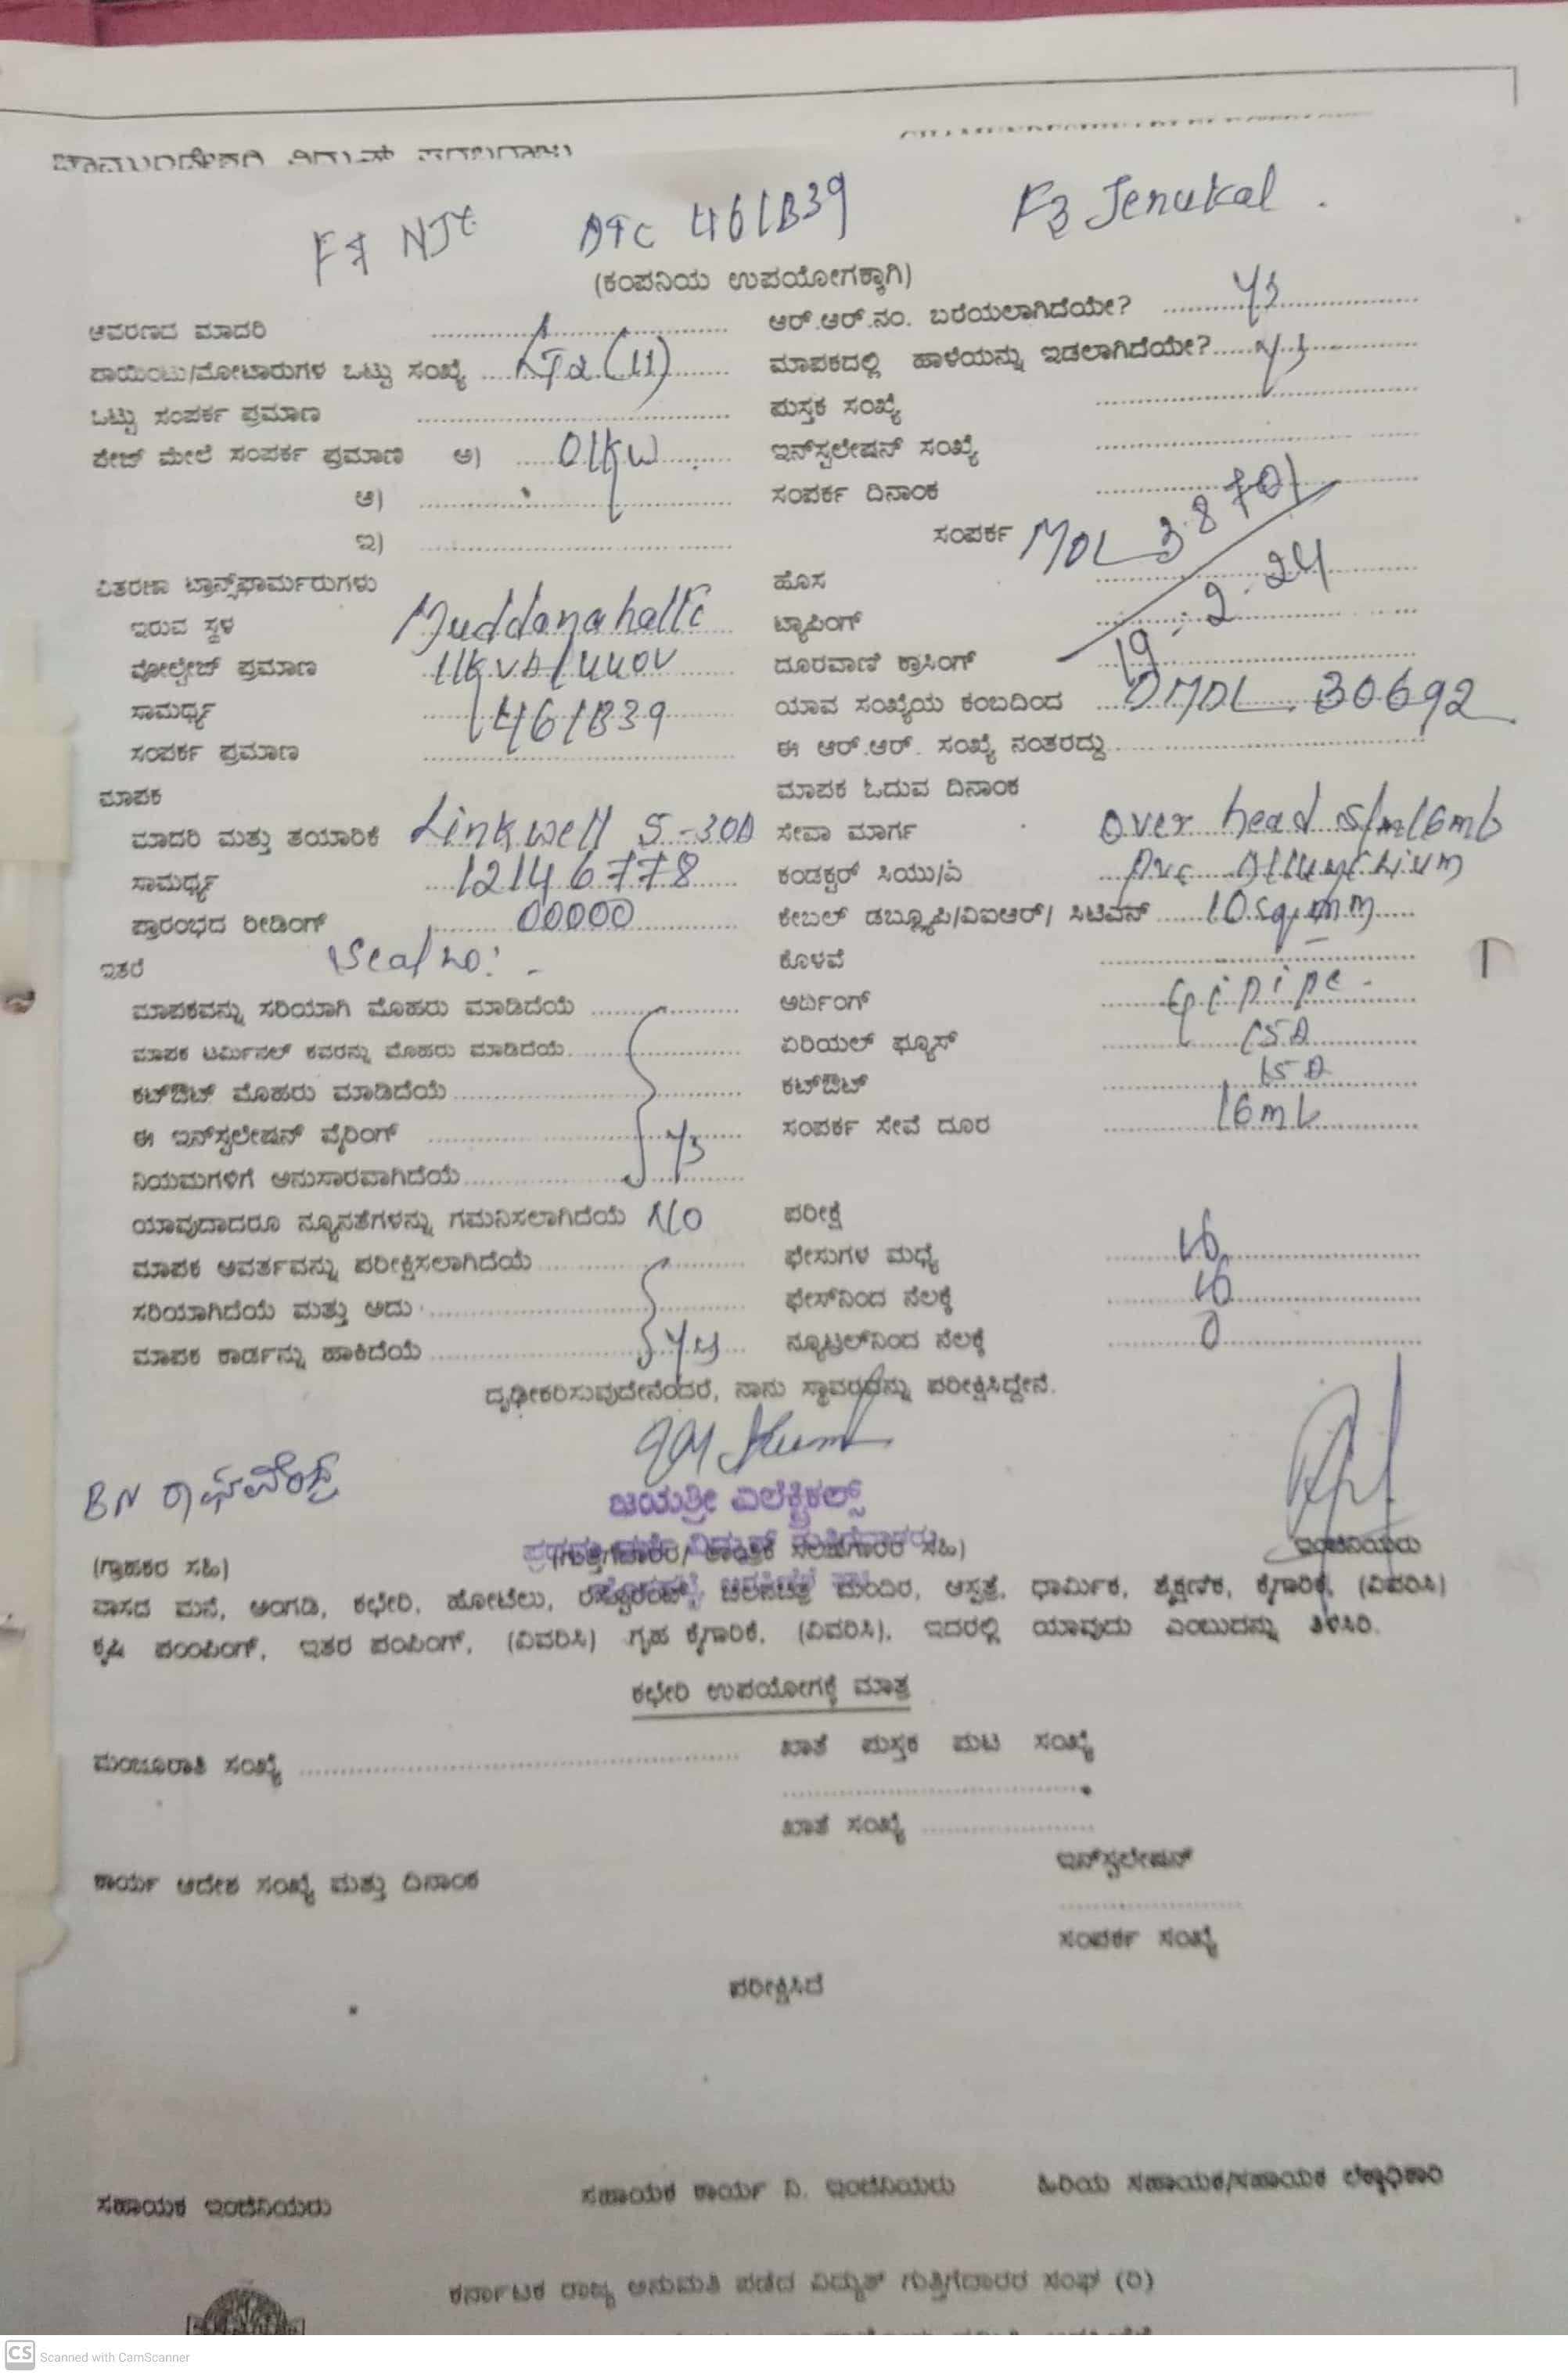 F7 NJY DTC 461B39 F3 Jenukal .
(ಕಂಪನಿಯ ಉಪಯೋಗಕ್ಕಾಗಿ)
ಆವರಣದ ಮಾದರಿ ಆರ್.ಆರ್.ನಂ. ಬರೆಯಲಾಗಿದೆಯೇ? ys
ಪಾಯಿಂಟು/ಮೋಟಾರುಗಳ ಒಟ್ಟು ಸಂಖ್ಯೆ LT2 (11) ಮಾಪಕದಲ್ಲಿ ಹಾಳೆಯನ್ನು ಇಡಲಾಗಿದೆಯೇ? ys
ಒಟ್ಟು ಸಂಪರ್ಕ ಪ್ರಮಾಣ ಪುಸ್ತಕ ಸಂಖ್ಯೆ
ಕೇಜ್ ಮೇಲೆ ಸಂಪರ್ಕ ಪ್ರಮಾಣ ಅ) 01kw ಇನ್‌ಸ್ಟಲೇಷನ್ ಸಂಖ್ಯೆ
ಆ) ಸಂಪರ್ಕ ದಿನಾಂಕ
ಇ) ಸಂಪರ್ಕ MDL 38701
ವಿತರಣಾ ಟ್ರಾನ್ಸ್‌ಫಾರ್ಮರುಗಳು ಹೊಸ 19.2.24
ಇರುವ ಸ್ಥಳ Muddanahalli ಟ್ಯಾಪಿಂಗ್
ವೋಲ್ಟೇಜ್ ಪ್ರಮಾಣ 11kVA/440V ದೂರವಾಣಿ ಕ್ರಾಸಿಂಗ್
ಸಾಮರ್ಥ್ಯ 461B39 ಯಾವ ಸಂಖ್ಯೆಯ ಕಂಬದಿಂದ DMDL 30692
ಸಂಪರ್ಕ ಪ್ರಮಾಣ ಈ ಆರ್.ಆರ್. ಸಂಖ್ಯೆ ನಂತರದ್ದು
ಮಾಪಕ ಮಾಪಕ ಓದುವ ದಿನಾಂಕ
ಮಾದರಿ ಮತ್ತು ತಯಾರಿಕೆ Linkwell 5-30A ಸೇವಾ ಮಾರ್ಗ over head s/m 16mt
ಸಾಮರ್ಥ್ಯ 12146778 ಕಂಡಕ್ಟರ್ ಸಿಯು/ಎ pvc Alluminium
ಪ್ರಾರಂಭದ ರೀಡಿಂಗ್ 00000 ಕೇಬಲ್ ಡಬ್ಲ್ಯೂಪಿ/ವಿಐಆರ್/ ಸಿಟಿಎಸ್ 10sq.mm
ಇತರೆ Seal no: - ಕೊಳವೆ -
ಮಾಪಕವನ್ನು ಸರಿಯಾಗಿ ಮೊಹರು ಮಾಡಿದೆಯೆ ಅರ್ಥಿಂಗ್ Gi pipe -
ಮಾಪಕ ಟರ್ಮಿನಲ್ ಕವರನ್ನು ಮೊಹರು ಮಾಡಿದೆಯೆ ಏರಿಯಲ್ ಫ್ಯೂಸ್ 15A
ಕಟ್‌ಔಟ್ ಮೊಹರು ಮಾಡಿದೆಯೆ ಕಟ್‌ಔಟ್ 15A
ಈ ಇನ್‌ಸ್ಟಲೇಷನ್ ವೈರಿಂಗ್ ys ಸಂಪರ್ಕ ಸೇವೆ ದೂರ 16mt
ನಿಯಮಗಳಿಗೆ ಅನುಸಾರವಾಗಿದೆಯೆ
ಯಾವುದಾದರೂ ನ್ಯೂನತೆಗಳನ್ನು ಗಮನಿಸಲಾಗಿದೆಯೆ No ಪರೀಕ್ಷೆ
ಮಾಪಕ ಆವರ್ತವನ್ನು ಪರೀಕ್ಷಿಸಲಾಗಿದೆಯೆ ಫೇಸುಗಳ ಮಧ್ಯೆ
ಸರಿಯಾಗಿದೆಯೆ ಮತ್ತು ಅದು ಫೇಸ್‌ನಿಂದ ನೆಲಕ್ಕೆ
ಮಾಪಕ ಕಾರ್ಡನ್ನು ಹಾಕಿದೆಯೆ ys ನ್ಯೂಟ್ರಲ್‌ನಿಂದ ನೆಲಕ್ಕೆ 0
ದೃಢೀಕರಿಸುವುದೇನೆಂದರೆ, ನಾನು ಸ್ಥಾವರವನ್ನು ಪರೀಕ್ಷಿಸಿದ್ದೇನೆ.
BN ರಾಘವೇಂದ್ರ
ಜಯಶ್ರೀ ಎಲೆಕ್ಟ್ರಿಕಲ್ಸ್
(ಗ್ರಾಹಕರ ಸಹಿ) (ಗುತ್ತಿಗೆದಾರರ/ ತಾಂತ್ರಿಕ ಸಲಹೆಗಾರರ ಸಹಿ) ಇಂಜಿನಿಯರು
ವಾಸದ ಮನೆ, ಅಂಗಡಿ, ಕಛೇರಿ, ಹೋಟೆಲು, ರೆಸ್ಟೋರೆಂಟ್, ಚಲನಚಿತ್ರ ಮಂದಿರ, ಆಸ್ಪತ್ರೆ, ಧಾರ್ಮಿಕ, ಶೈಕ್ಷಣಿಕ, ಕೈಗಾರಿಕೆ, (ವಿವರಿಸಿ)
ಕೃಷಿ ಪಂಂಪಿಂಗ್, ಇತರ ಪಂಪಿಂಗ್, (ವಿವರಿಸಿ) ಗೃಹ ಕೈಗಾರಿಕೆ, (ವಿವರಿಸಿ), ಇದರಲ್ಲಿ ಯಾವುದು ಎಂಬುದನ್ನು ತಿಳಿಸಿರಿ.
ಕಛೇರಿ ಉಪಯೋಗಕ್ಕೆ ಮಾತ್ರ
ಮಂಜೂರಾತಿ ಸಂಖ್ಯೆ ಖಾತೆ ಪುಸ್ತಕ ಪುಟ ಸಂಖ್ಯೆ
ಖಾತೆ ಸಂಖ್ಯೆ
ಇನ್‌ಸ್ಟಲೇಷನ್
ಕಾರ್ಯ ಆದೇಶ ಸಂಖ್ಯೆ ಮತ್ತು ದಿನಾಂಕ
ಸಂಪರ್ಕ ಸಂಖ್ಯೆ
ಪರೀಕ್ಷಿಸಿದೆ
ಸಹಾಯಕ ಇಂಜಿನಿಯರು ಸಹಾಯಕ ಕಾರ್ಯ ನಿ. ಇಂಜಿನಿಯರು ಹಿರಿಯ ಸಹಾಯಕ/ಸಹಾಯಕ ಲೆಕ್ಕಾಧಿಕಾರಿ
ಕರ್ನಾಟಕ ರಾಜ್ಯ ಅನುಮತಿ ಪಡೆದ ವಿದ್ಯುತ್ ಗುತ್ತಿಗೆದಾರರ ಸಂಘ (ರಿ)
CS Scanned with CamScanner